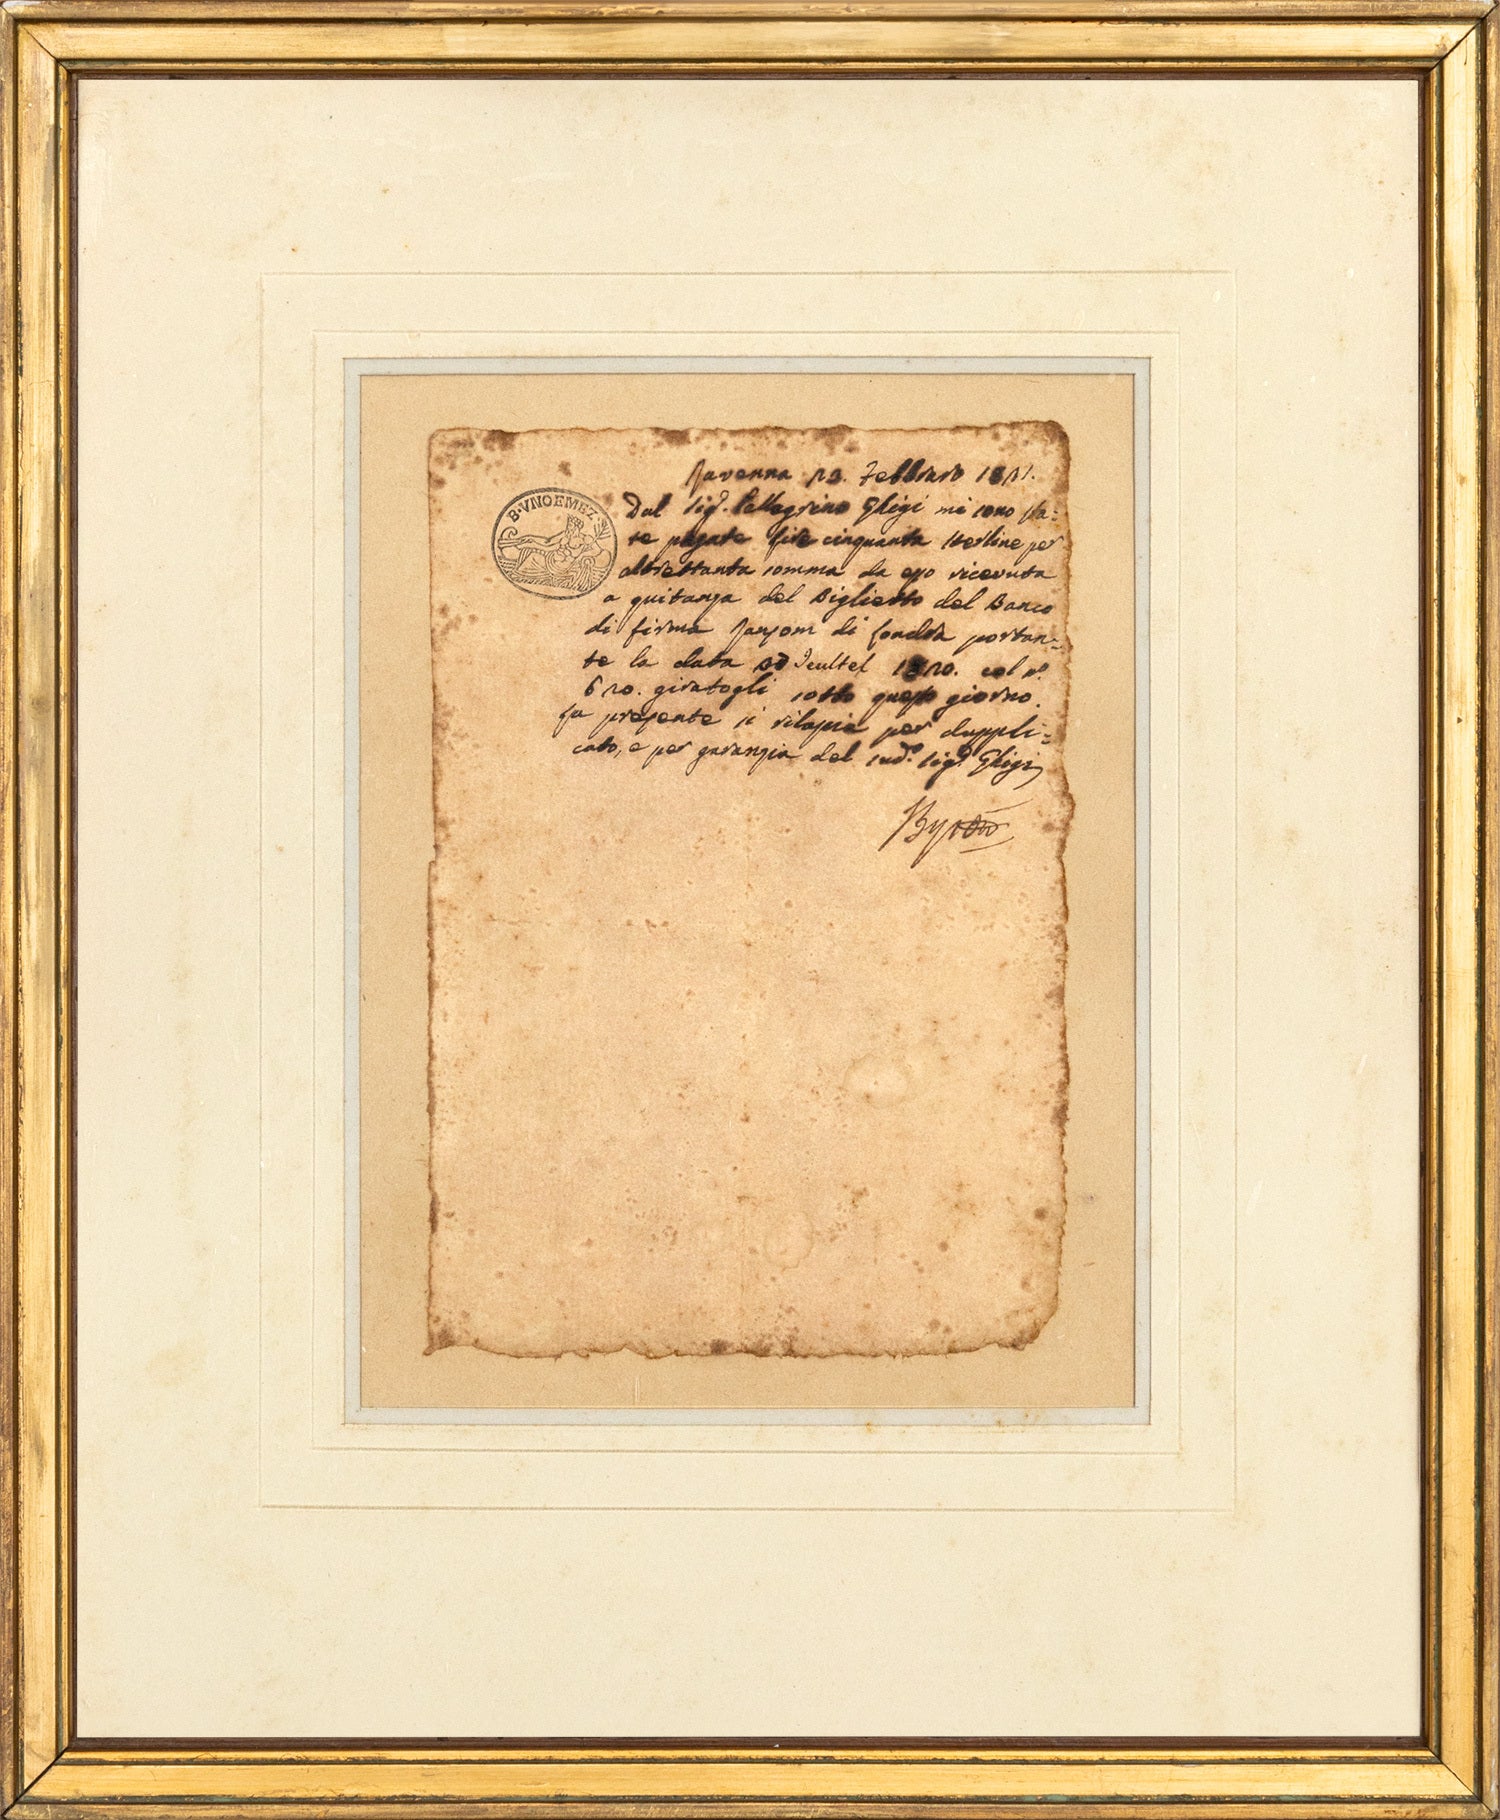 B·VNOEMEZ·
Ravenna 23. Febbraro 1821.
Dal Sig.r Pellegrino Ghigi mi sono sta=
te pagate lire cinquanta sterline per
altrettanta somma da esso ricevuta
a quitanza del Biglietto del Banco
di firma Ransom di Londra portan=
te la data 1820. col n.o
620. giratogli sotto questo giorno.
La presente si rilascia per duppli=
cato, e per garanzia del sud.o Sig.r Ghigi
Byron